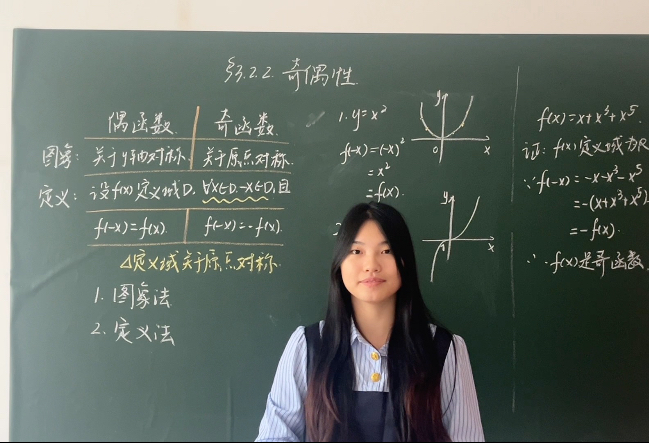 §3.2.2. 奇偶性.
偶函数. 奇函数.
图象: 关于y轴对称. 关于原点对称.
定义: 设f(x)定义域D, ∀x∈D, -x∈D, 且
f(-x)=f(x). f(-x)=-f(x).
△定义域关于原点对称.
1. 图象法
2. 定义法
1. y=x²
f(-x)=(-x)²
=x²
=f(x).
y
0 x
y
x
f(x)=x+x³+x⁵.
证: f(x)定义域为R
∵f(-x)=-x-x³-x⁵
=-(x+x³+x⁵)
=-f(x).
∴f(x)是奇函数.